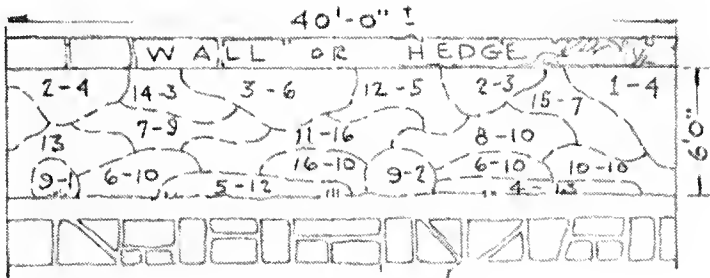 40'-0" ±
WALL OR HEDGE
2-4 14-3 3-6 12-5 2-3 15-7 1-4
13 7-9 11-16 8-10
9-1 6-10 5-12 16-10 9-2 6-10 10-10
4-13
6'0"